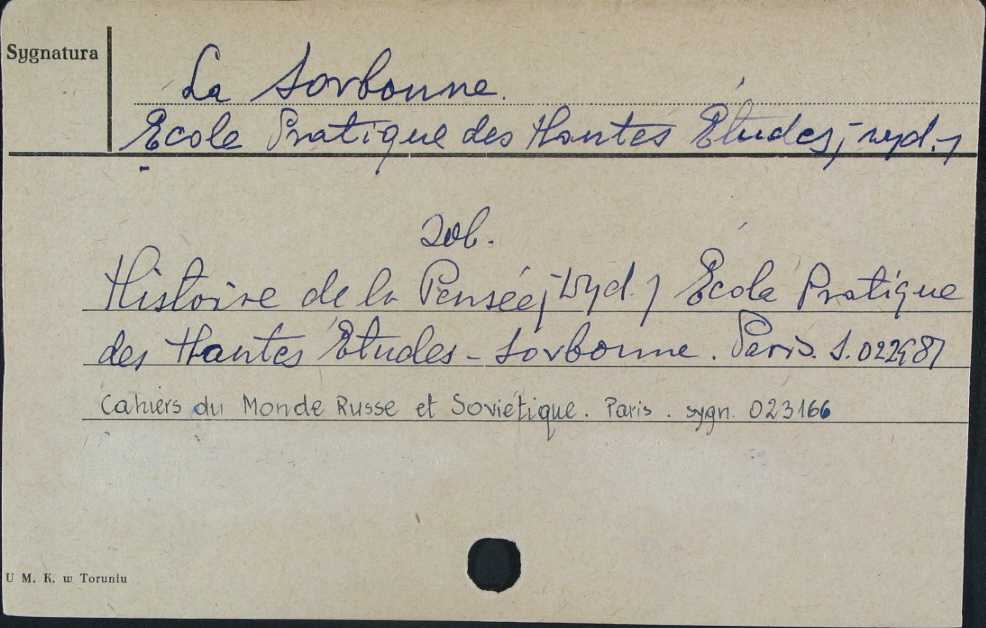 Sygnatura
La Sorbonne.
École Pratique des Hautes Études, wyd.
zob.
Histoire de la Pensée, wyd. École Pratique
des Hautes Études - Sorbonne. Paris. S.
Cahiers du Monde Russe et Soviétique. Paris. sygn. 023166
U M. K. w Toruniu